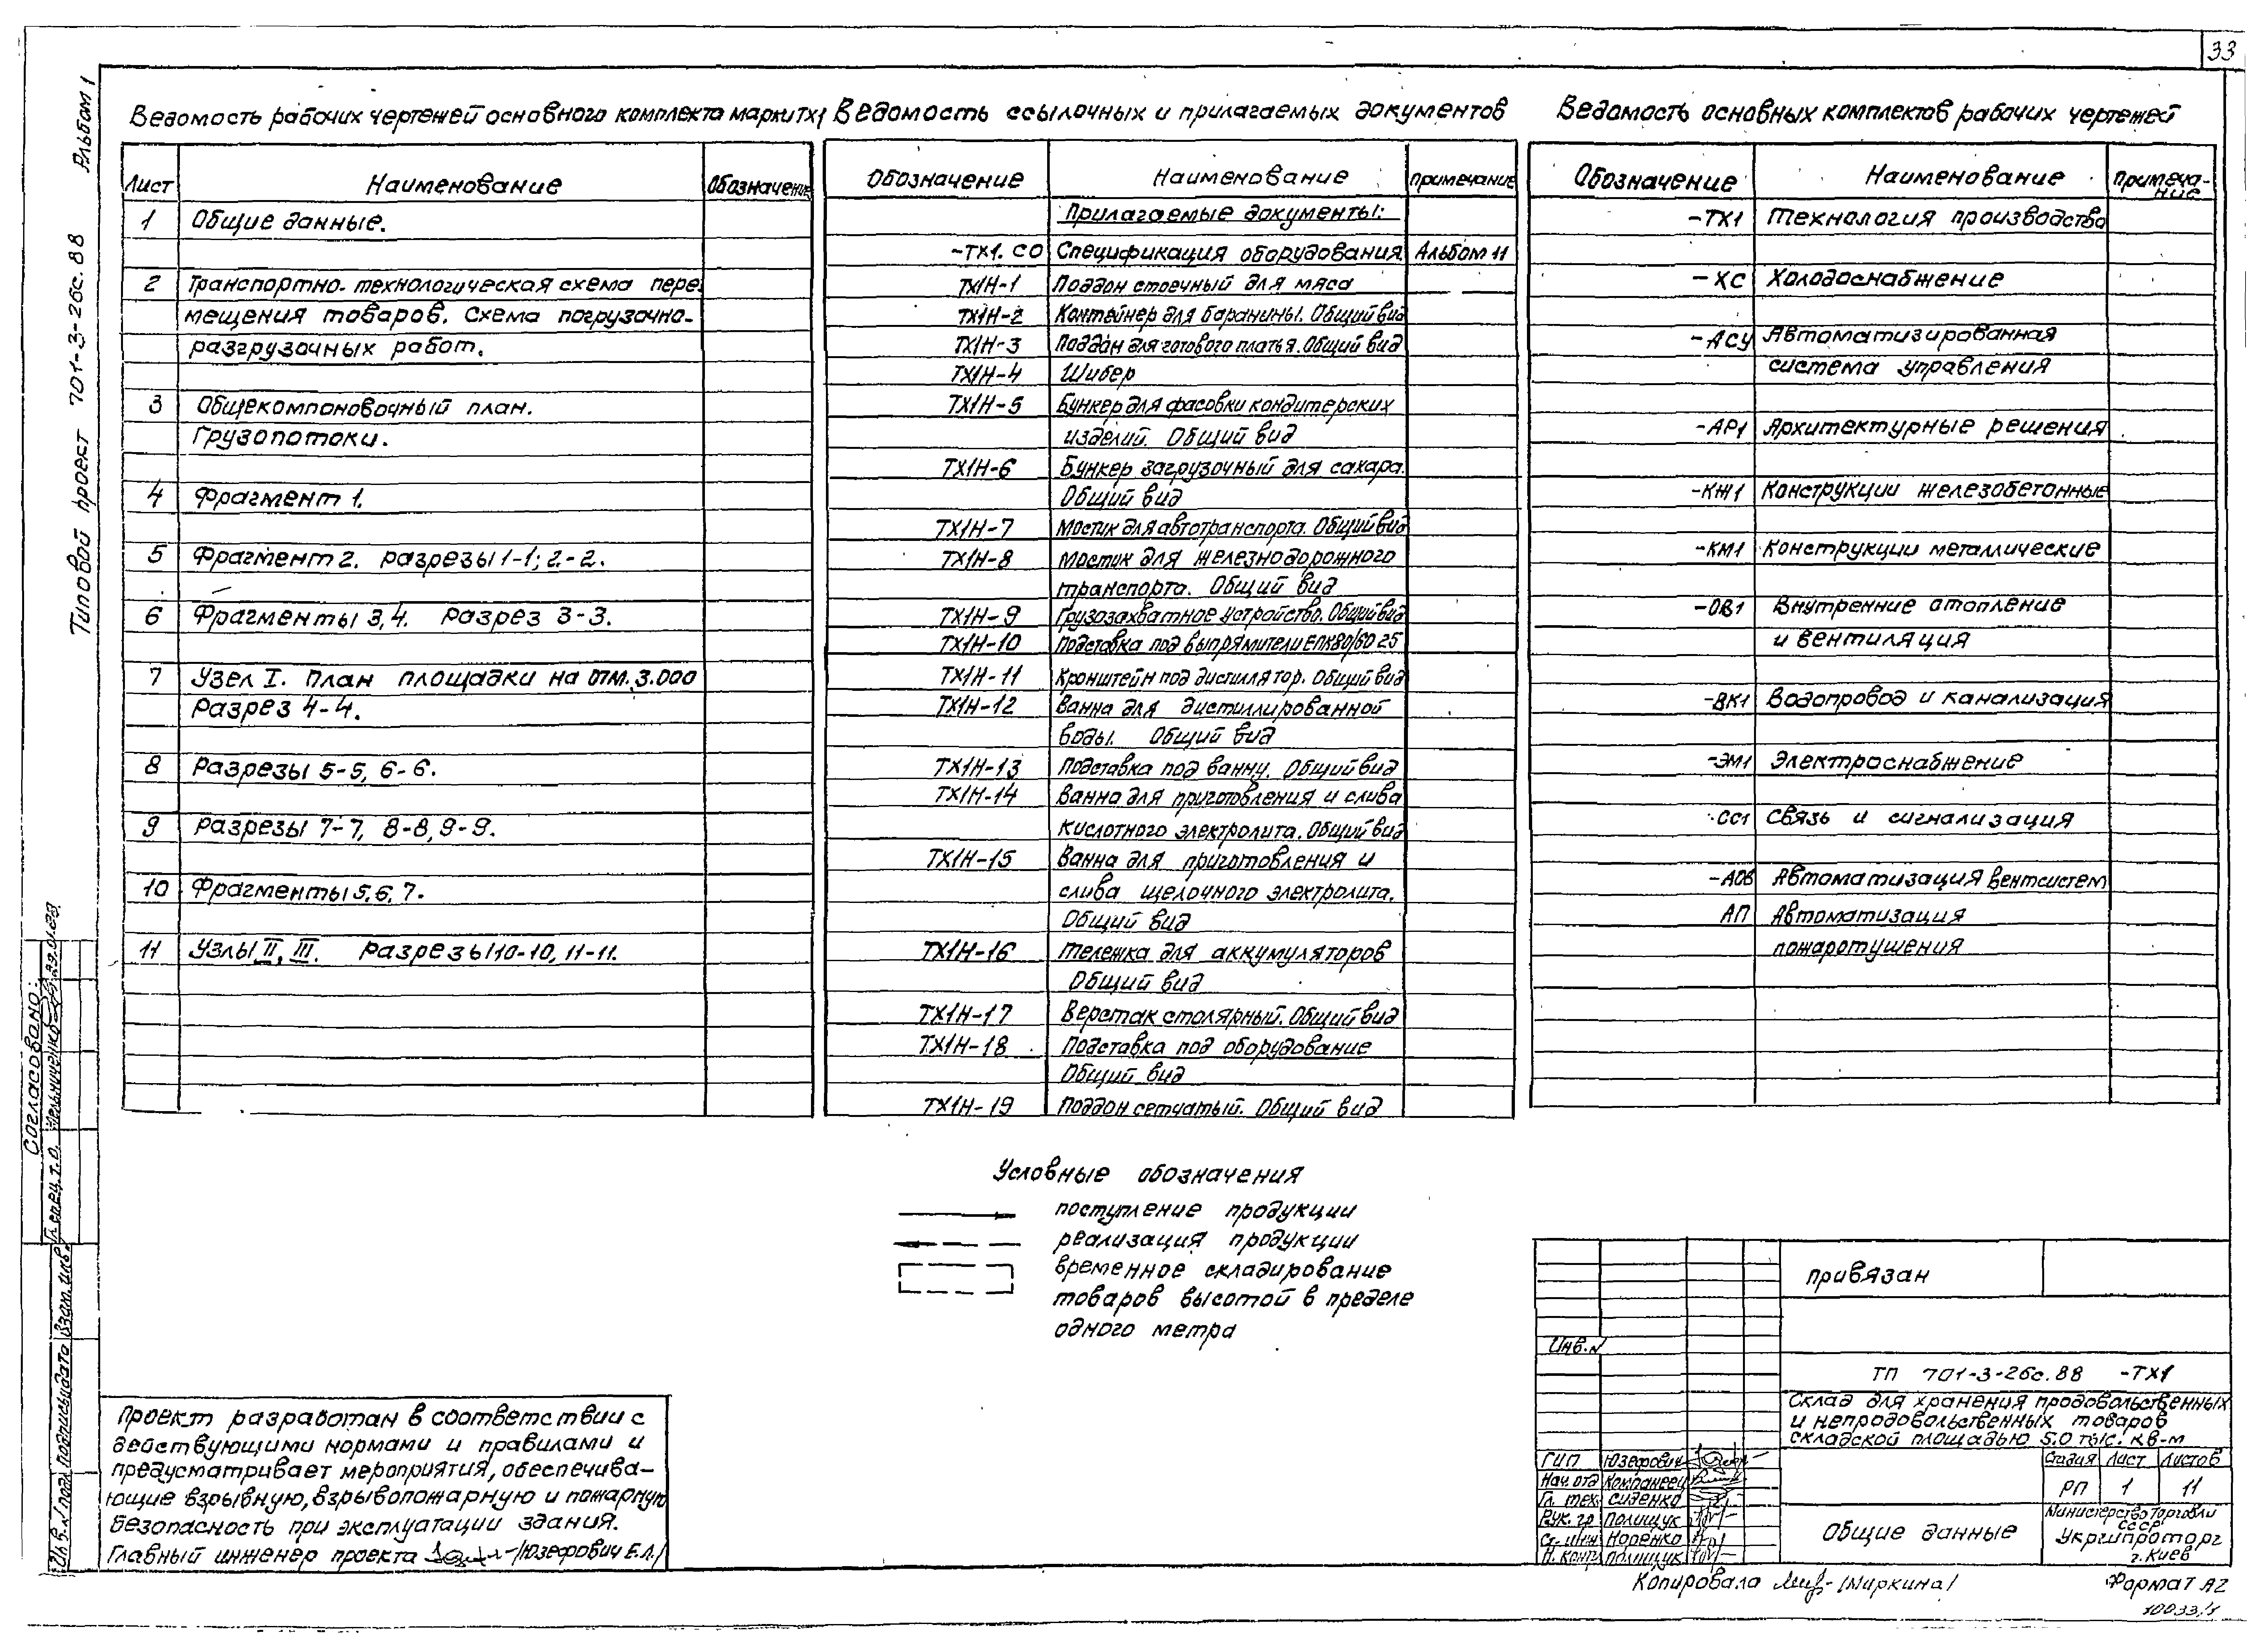 33
Альбом 1
Типовой проект 701-3-26с.88
Ведомость рабочих чертежей основного комплекта марки ТХ1
Лист Наименование Обозначение
1 Общие данные.
2 Транспортно-технологическая схема пере-
мещения товаров. Схема погрузочно-
разгрузочных работ.
3 Общекомпоновочный план.
Грузопотоки.
4 Фрагмент 1.
5 Фрагмент 2. Разрезы 1-1; 2-2.
6 Фрагменты 3,4. Разрез 3-3.
7 Узел I. План площадки на отм. 3.000
Разрез 4-4.
8 Разрезы 5-5, 6-6.
9 Разрезы 7-7, 8-8, 9-9.
10 Фрагменты 5, 6, 7.
11 Узлы II, III. Разрезы 10-10, 11-11.
Ведомость ссылочных и прилагаемых документов
Обозначение Наименование Примечание
Прилагаемые документы:
-ТХ1.СО Спецификация оборудования Альбом 11
ТХ1Н-1 Поддон стоечный для мяса
ТХ1Н-2 Контейнер для баранины. Общий вид
ТХ1Н-3 Поддон для готового платья. Общий вид
ТХ1Н-4 Шибер
ТХ1Н-5 Бункер для фасовки кондитерских
изделий. Общий вид
ТХ1Н-6 Бункер загрузочный для сахара.
Общий вид
ТХ1Н-7 Мостик для автотранспорта. Общий вид
ТХ1Н-8 Мостик для железнодорожного
транспорта. Общий вид
ТХ1Н-9 Грузозахватное устройство. Общий вид
ТХ1Н-10 Подставка под выпрямители ЕПК80/60 25
ТХ1Н-11 Кронштейн под дистиллятор. Общий вид
ТХ1Н-12 Ванна для дистиллированной
воды. Общий вид
ТХ1Н-13 Подставка под ванну. Общий вид
ТХ1Н-14 Ванна для приготовления и слива
кислотного электролита. Общий вид
ТХ1Н-15 Ванна для приготовления и
слива щелочного электролита.
Общий вид
ТХ1Н-16 Тележка для аккумуляторов
Общий вид
ТХ1Н-17 Верстак столярный. Общий вид
ТХ1Н-18 Подставка под оборудование
Общий вид
ТХ1Н-19 Поддон сетчатый. Общий вид
Ведомость основных комплектов рабочих чертежей
Обозначение Наименование Примеча-
ние
-ТХ1 Технология производства
-ХС Холодоснабжение
-АСУ Автоматизированная
система управления
-АР1 Архитектурные решения
-КЖ1 Конструкции железобетонные
-КМ1 Конструкции металлические
-ОВ1 Внутренние отопление
и вентиляция
-ВК1 Водопровод и канализация
-ЭМ1 Электроснабжение
-СС1 Связь и сигнализация
-АОВ Автоматизация вентсистем
АП Автоматизация
пожаротушения
Условные обозначения
поступление продукции
реализация продукции
временное складирование
товаров высотой в пределе
одного метра
Проект разработан в соответствии с
действующими нормами и правилами и
предусматривает мероприятия, обеспечива-
ющие взрывную, взрывопожарную и пожарную
безопасность при эксплуатации здания.
Главный инженер проекта /Юзефович Е.Л./
Согласовано:
Гл.спец.т.о. Мельниченко 29.01.88
Инв.№ подл. Подпись и дата Взам.инв.
Привязан
Инв.№
ТП 701-3-26с.88 -ТХ1
Склад для хранения продовольственных
и непродовольственных товаров
складской площадью 5.0 тыс. кв-м
ГИП Юзефович
Нач.отд Компанеец
Гл. тех. Сиденко
Рук. гр Полищук
Ст. инж Норенко
Н. контр Полищук
Стадия Лист Листов
РП 1 11
Общие данные
Министерство торговли
СССР
Укргипроторг
г. Киев
Копировала /Миркина/
Формат А2
10033/1